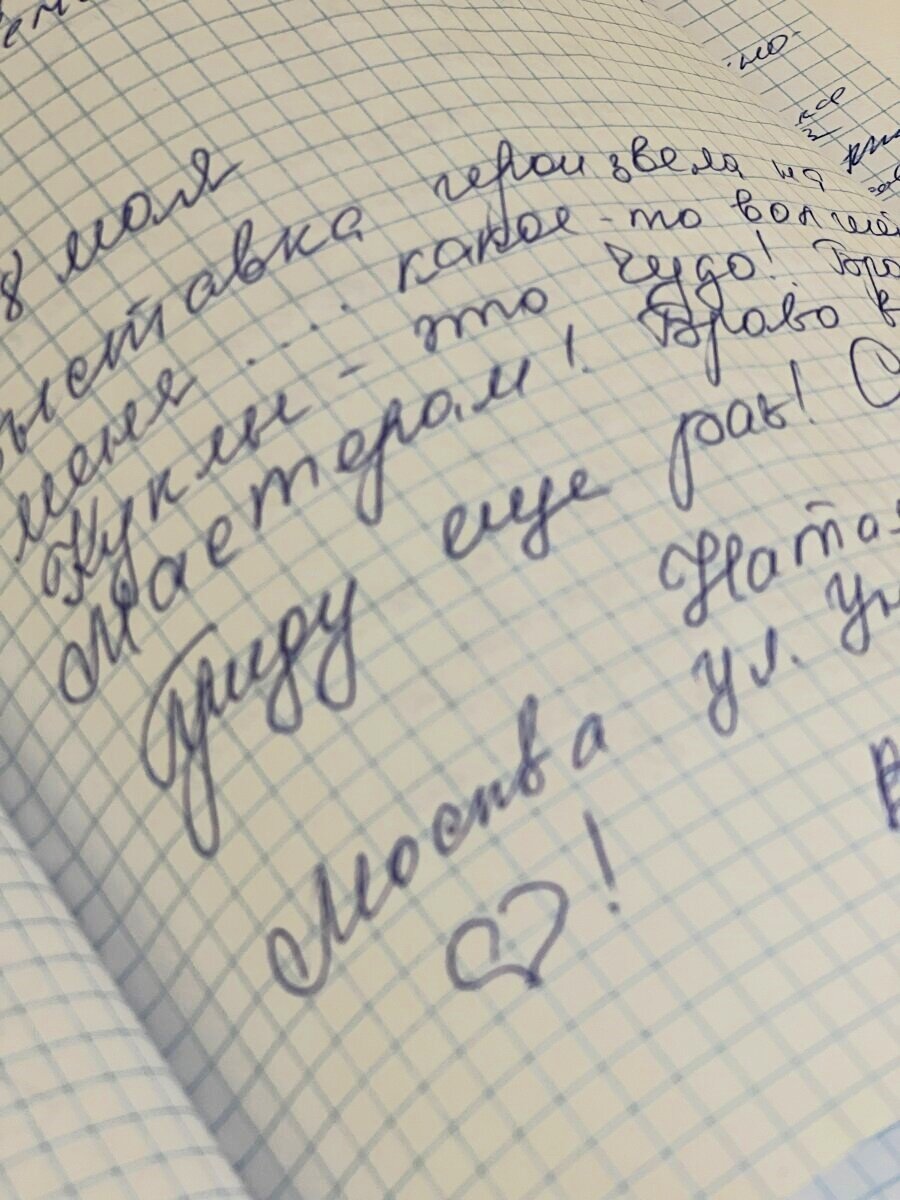 8 июля
выставка произвела на
меня .... какое-то волшеб
Куклы - это чудо! Бра
Мастерам! Браво в
Приду еще раз! С
Натал
Москва ул. Ун
В
!